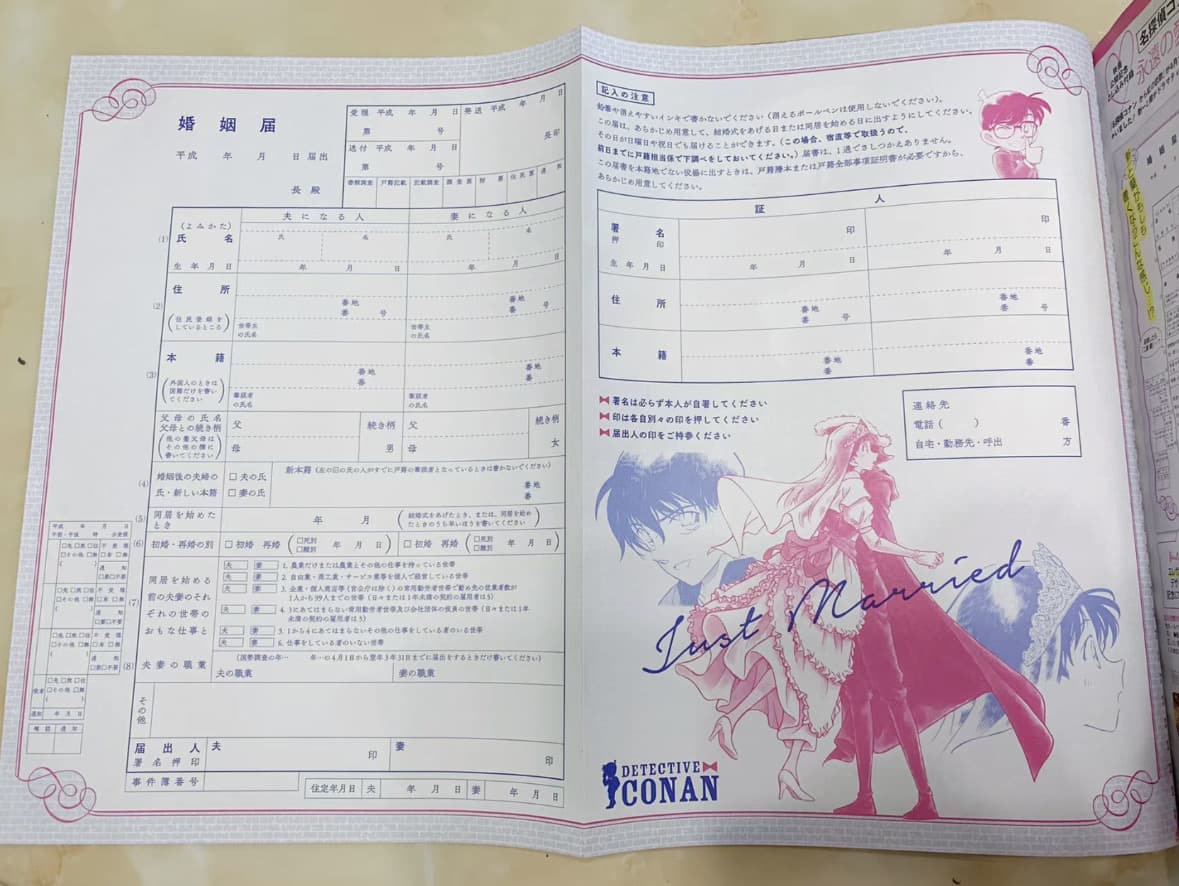 婚姻届
平成　年　月　日 届出
長 殿
受理 平成　年　月　日
第　号
発送 平成　年　月　日
送付 平成　年　月　日
第　号
長 印
書類調査 戸籍記載 記載調査 調査票 附票 住民票 通知
夫になる人 妻になる人
(1)
(よみかた)
氏名
氏 名 氏 名
生年月日
年 月 日 年 月 日
(2)
住所
番地 番地
番 号 番 号
(住民登録をしているところ)
世帯主の氏名 世帯主の氏名
(3)
本籍
番地 番地
番 番
(外国人のときは国籍だけを書いてください)
筆頭者の氏名 筆頭者の氏名
父母の氏名
父母との続き柄
(他の養父母はその他の欄に書いてください)
父 続き柄 父 続き柄
母 男 母 女
(4)
婚姻後の夫婦の氏・新しい本籍
□夫の氏
□妻の氏
新本籍(左の☑の氏の人がすでに戸籍の筆頭者となっているときは書かないでください)
番地
番
(5)
同居を始めたとき
年 月
(結婚式をあげたとき、または、同居を始めたときのうち早いほうを書いてください)
(6)
初婚・再婚の別
□初婚 再婚(□死別 □離別 年 月 日)
□初婚 再婚(□死別 □離別 年 月 日)
(7)
同居を始める前の夫妻のそれぞれの世帯のおもな仕事と
夫 妻 1.農業だけまたは農業とその他の仕事を持っている世帯
夫 妻 2.自由業・商工業・サービス業等を個人で経営している世帯
夫 妻 3.企業・個人商店等(官公庁は除く)の常用勤労者世帯で勤め先の従業者数が
1人から99人までの世帯(日々または1年未満の契約の雇用者は5)
夫 妻 4.3にあてはまらない常用勤労者世帯及び会社団体の役員の世帯(日々または1年
未満の契約の雇用者は5)
夫 妻 5.1から4にあてはまらないその他の仕事をしている者のいる世帯
夫 妻 6.仕事をしている者のいない世帯
(8)
夫妻の職業
(国勢調査の年… 年…の4月1日から翌年3月31日までに届出をするときだけ書いてください)
夫の職業 妻の職業
その他
届出人
署名押印
夫 印 妻 印
事件簿番号
住定年月日 夫 年 月 日 妻 年 月 日
記入の注意
鉛筆や消えやすいインキで書かないでください(消えるボールペンは使用しないでください)。
この届は、あらかじめ用意して、結婚式をあげる日または同居を始める日に出すようにしてください。
その日が日曜日や祝日でも届けることができます。(この場合、宿直等で取扱うので、
前日までに戸籍担当係で下調べをしておいてください。)届書は、1通でさしつかえありません。
この届書を本籍地でない役場に出すときは、戸籍謄本または戸籍全部事項証明書が必要ですから、
あらかじめ用意してください。
証人
署名
押印
印 印
生年月日
年 月 日 年 月 日
住所
番地 番地
番 号 番 号
本籍
番地 番地
番 番
署名は必ず本人が自署してください
印は各自別々の印を押してください
届出人の印をご持参ください
連絡先
電話( ) 番
自宅・勤務先・呼出 方
Just Married
DETECTIVE
CONAN